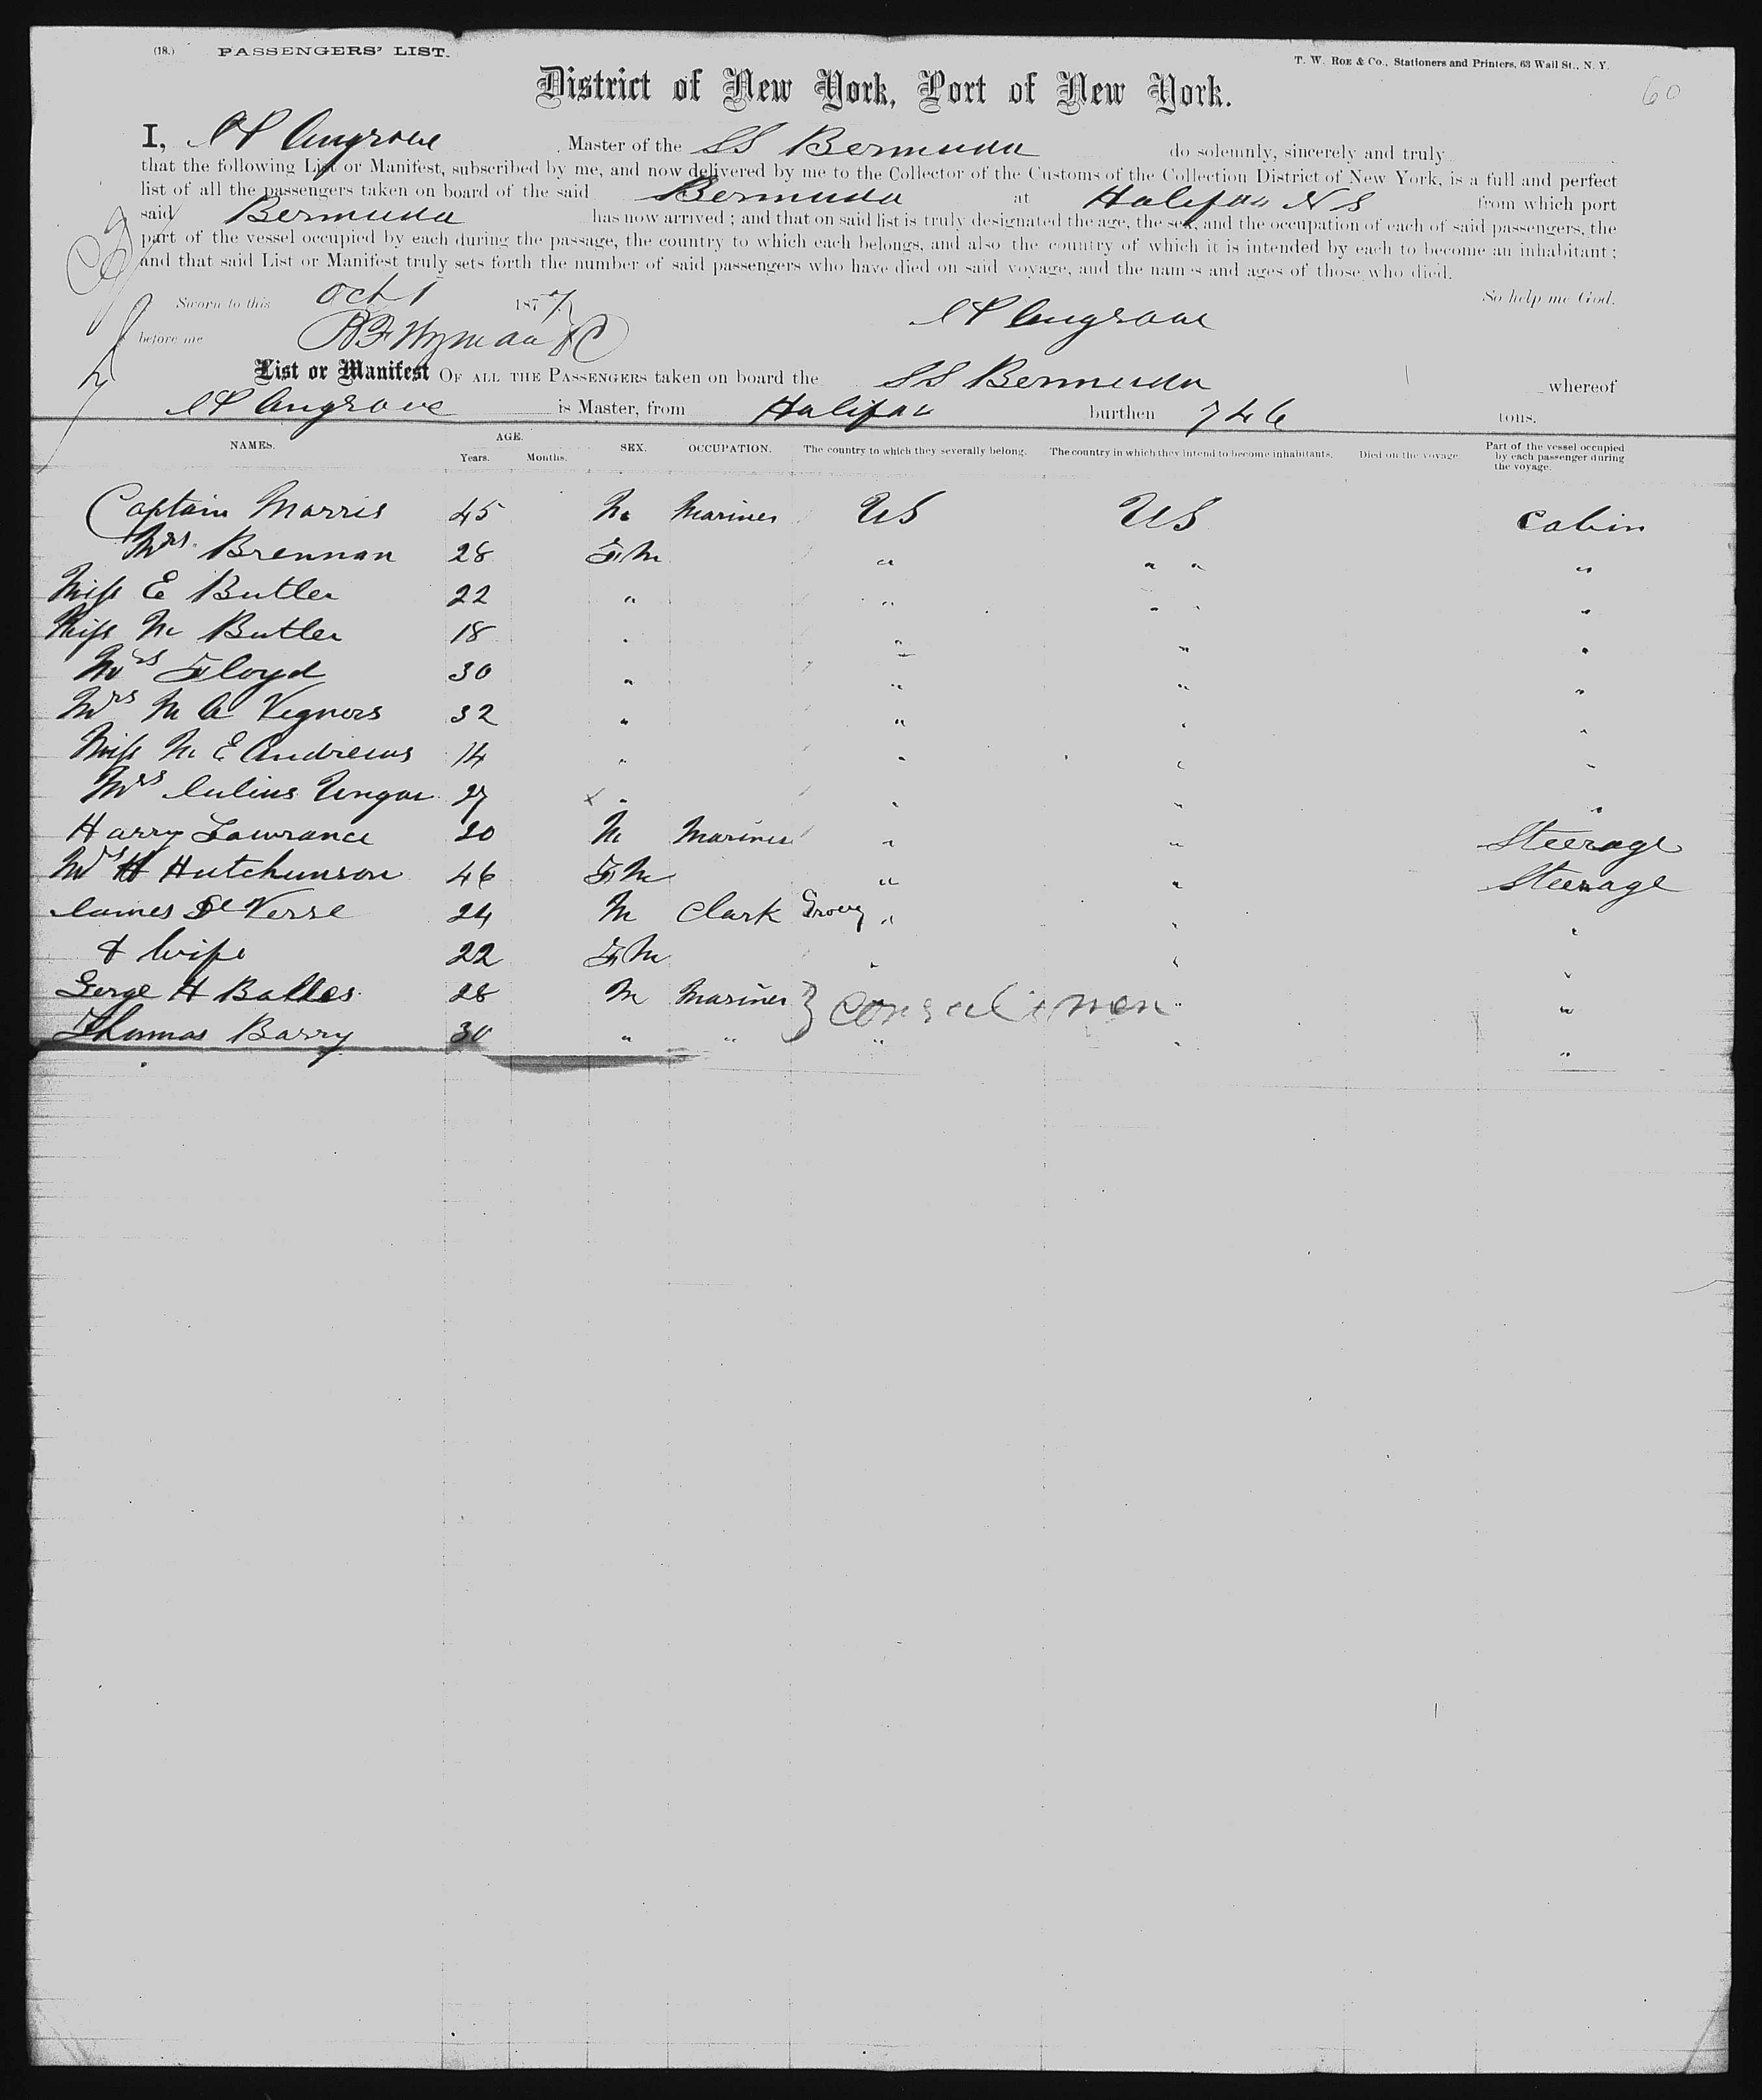 (18.) PASSENGERS' LIST.
T. W. ROE & CO., Stationers and Printers, 63 Wall St., N. Y.
60
District of New York, Port of New York.
I, Angrove Master of the SS Bermuda do solemnly, sincerely and truly
that the following List or Manifest, subscribed by me, and now delivered by me to the Collector of the Customs of the Collection District of New York, is a full and perfect
list of all the passengers taken on board of the said Bermuda at Halifax N S from which port
said Bermuda has now arrived ; and that on said list is truly designated the age, the sex, and the occupation of each of said passengers, the
part of the vessel occupied by each during the passage, the country to which each belongs, and also the country of which it is intended by each to become an inhabitant ;
and that said List or Manifest truly sets forth the number of said passengers who have died on said voyage, and the names and ages of those who died.
So help me God.
Sworn to this Oct 1 1877
Angrove
before me Wyman
List or Manifest OF ALL THE PASSENGERS taken on board the SS Bermuda whereof
Angrove is Master, from Halifax burthen 746 tons.
NAMES. AGE. Years. Months. SEX. OCCUPATION. The country to which they severally belong. The country in which they intend to become inhabitants. Died on the voyage. Part of the vessel occupied by each passenger during the voyage.
Captain Morris 45 M Mariner US US Cabin
Mrs Brennan 28 F M " " " "
Miss E Butler 22 " " " "
Miss M Butler 18 " " " "
Mrs Floyd 30 " " " "
Mrs M A Vegners 32 " " " "
Miss M E Andrews 14 " " " "
Mrs Julius Ungar 27 " " " "
Harry Lawrance 20 M Mariner " " Steerage
Mrs H Hutchunson 46 F M " " Steerage
James De Verse 24 M Clark " " "
& Wife 22 F M " " "
Gerge H Balles 28 M Mariner " "
Thomas Barry 30 " " " " "